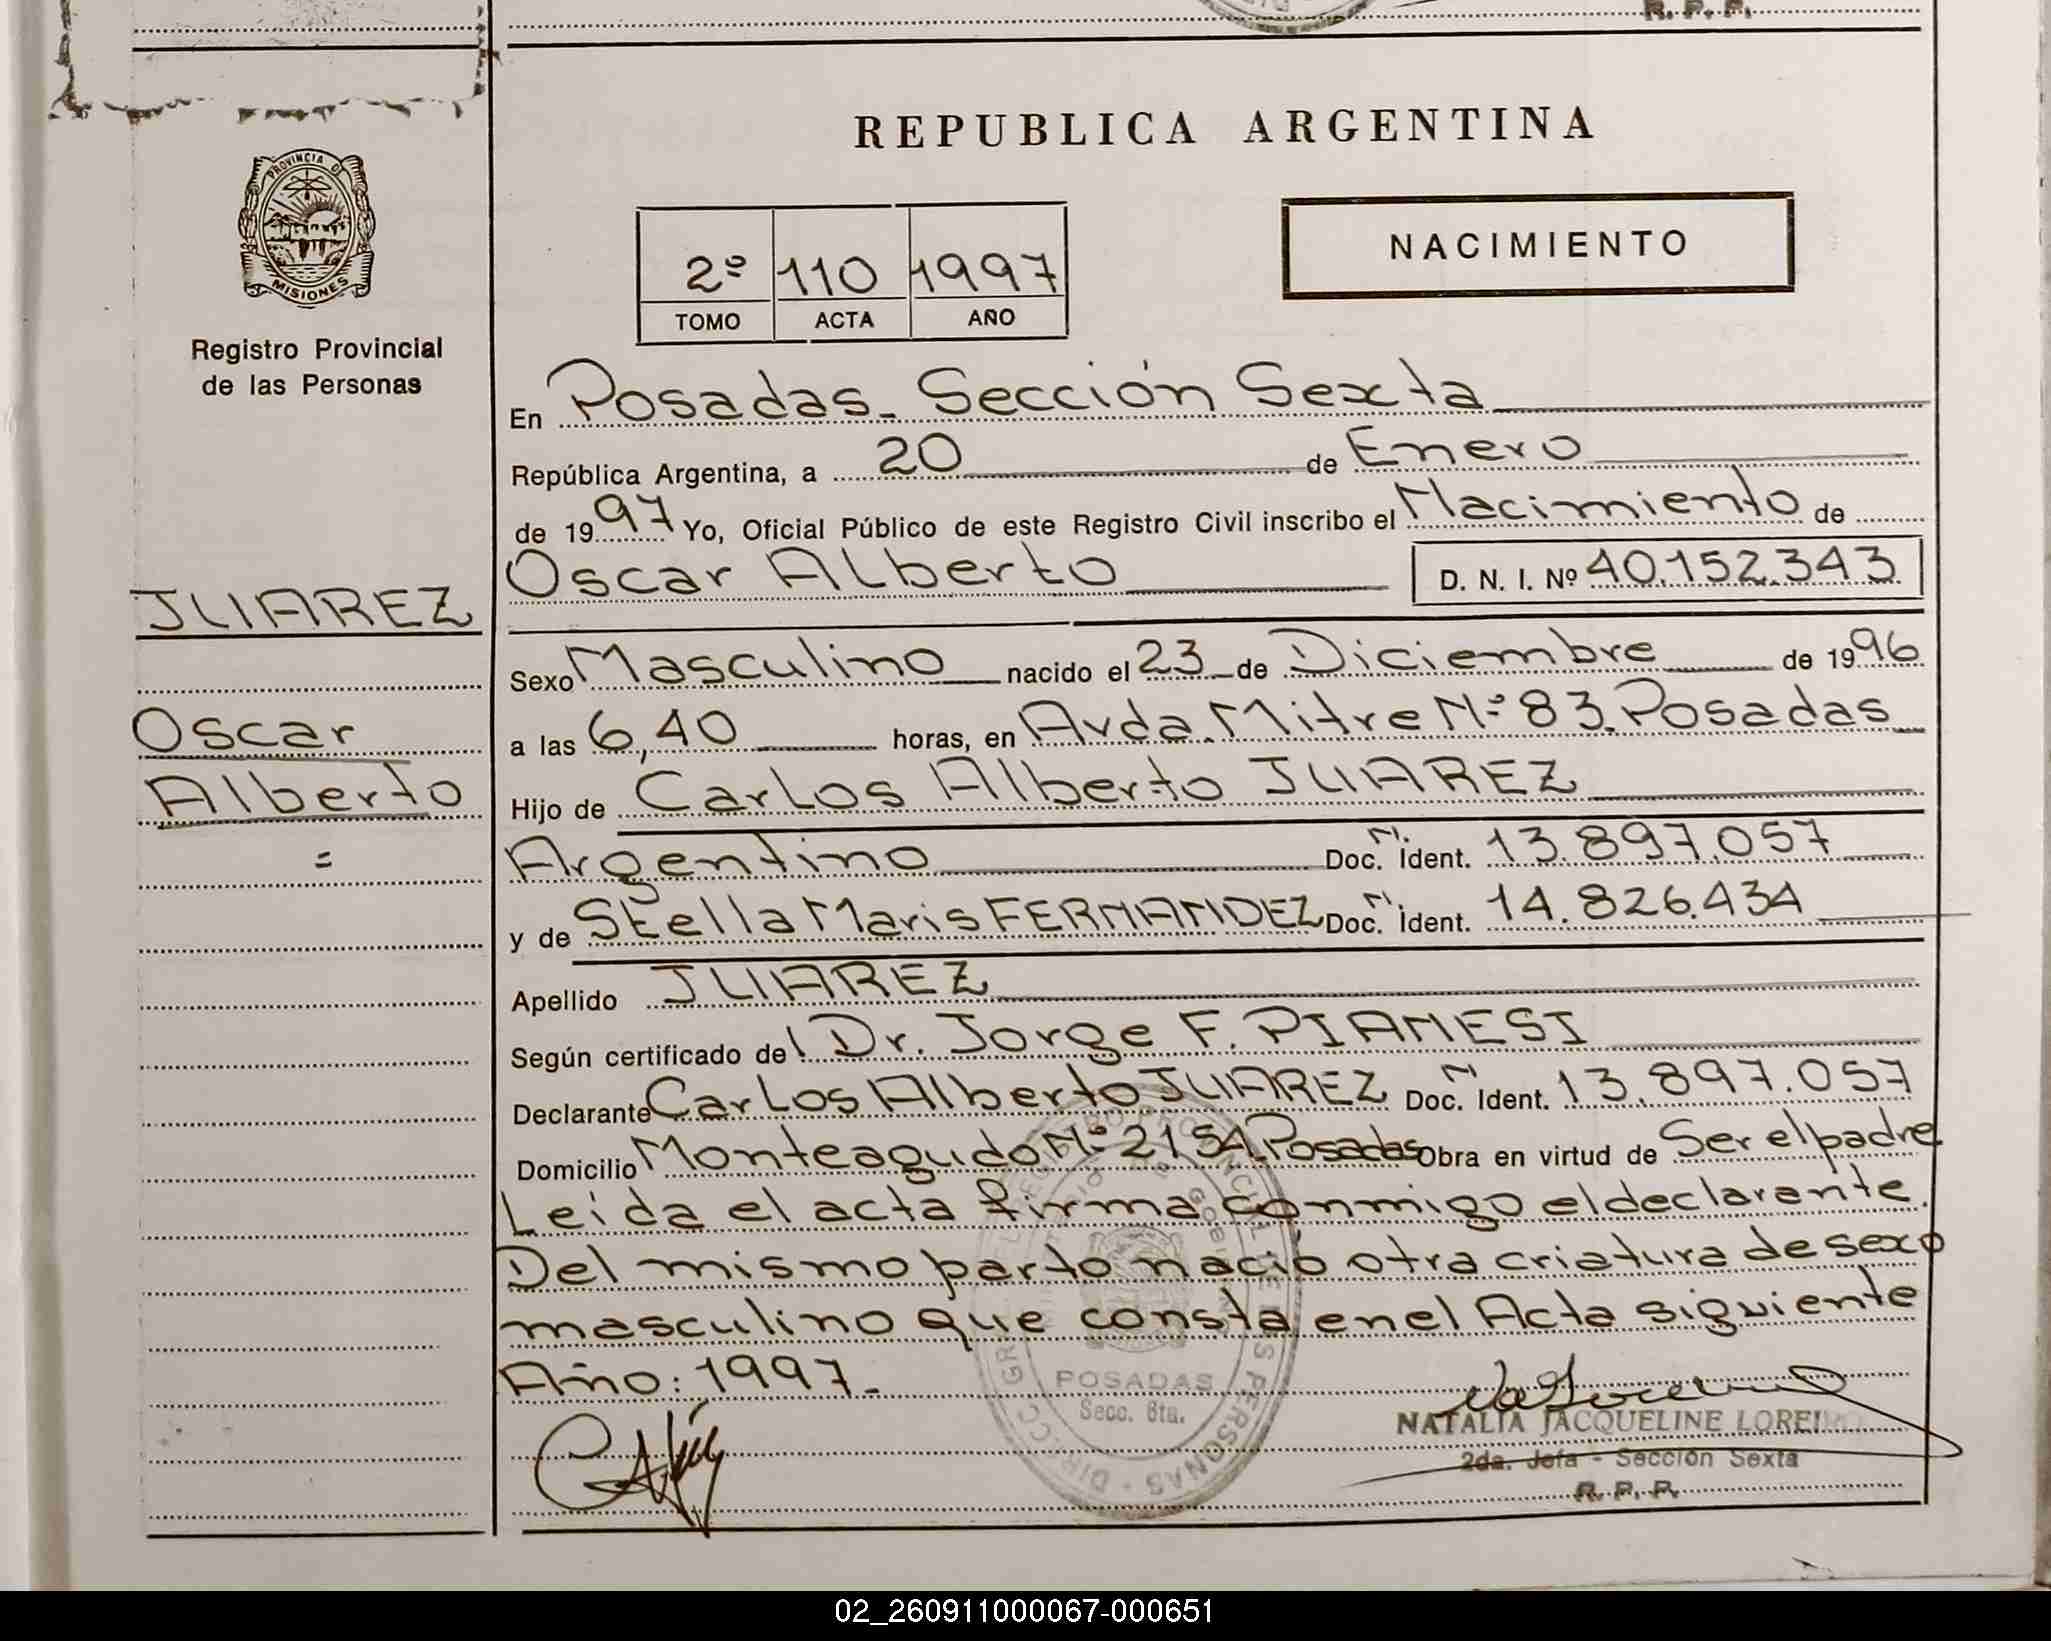 R. P. P.
REPUBLICA ARGENTINA
PROVINCIA D
MISIONES
Registro Provincial
de las Personas
NACIMIENTO
2º 110 1997
TOMO ACTA AÑO
En Posadas - Sección Sexta
República Argentina, a 20 de Enero
de 1997 Yo, Oficial Público de este Registro Civil inscribo el Nacimiento de
Oscar Alberto D. N. I. Nº 40.152.343
JUAREZ
Oscar
Alberto
=
Sexo Masculino nacido el 23 de Diciembre de 1996
a las 6,40 horas, en Avda. Mitre Nº 83. Posadas
Hijo de Carlos Alberto JUAREZ
Argentino Doc. N. Ident. 13.897.057
y de Stella Maris FERNANDEZ Doc. N. Ident. 14.826.434
Apellido JUAREZ
Según certificado del Dr. Jorge F. PIANESI
Declarante Carlos Alberto JUAREZ Doc. N. Ident. 13.897.057
Domicilio Monteagudo Nº 2154. Posadas Obra en virtud de Ser el padre
Leída el acta firma conmigo el declarante.
Del mismo parto nació otra criatura de sexo
masculino que consta en el Acta siguiente
Año: 1997.-
POSADAS
Secc. 6ta.
NATALIA JACQUELINE LOREIRO
2da. Jefa - Sección Sexta
R. P. P.
02_260911000067-000651